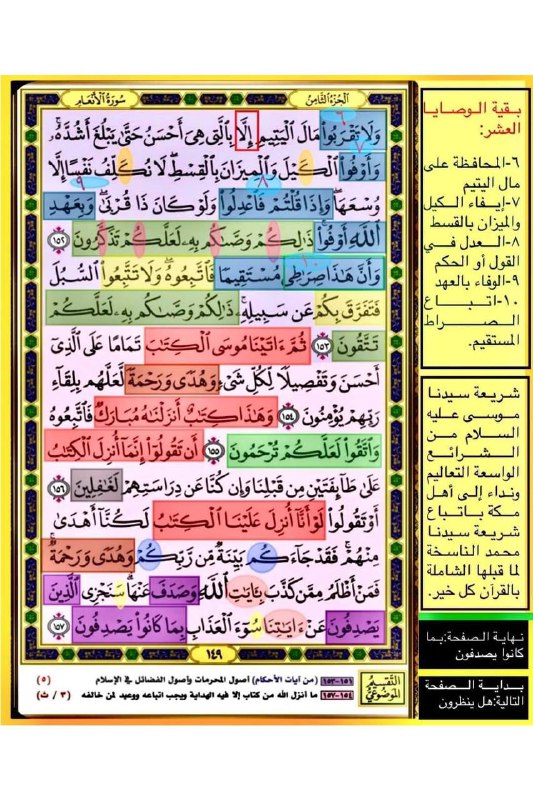 سُورَةُ الْأَنْعَامِ
الجُزْءُ الثَّامِنُ
وَلَا تَقْرَبُوا۟ مَالَ ٱلْيَتِيمِ إِلَّا بِٱلَّتِى هِىَ أَحْسَنُ حَتَّىٰ يَبْلُغَ أَشُدَّهُۥۖ
وَأَوْفُوا۟ ٱلْكَيْلَ وَٱلْمِيزَانَ بِٱلْقِسْطِۖ لَا نُكَلِّفُ نَفْسًا إِلَّا
وُسْعَهَاۖ وَإِذَا قُلْتُمْ فَٱعْدِلُوا۟ وَلَوْ كَانَ ذَا قُرْبَىٰۖ وَبِعَهْدِ
ٱللَّهِ أَوْفُوا۟ۚ ذَٰلِكُمْ وَصَّىٰكُم بِهِۦ لَعَلَّكُمْ تَذَكَّرُونَ ١٥٢
وَأَنَّ هَٰذَا صِرَٰطِى مُسْتَقِيمًا فَٱتَّبِعُوهُۖ وَلَا تَتَّبِعُوا۟ ٱلسُّبُلَ
فَتَفَرَّقَ بِكُمْ عَن سَبِيلِهِۦۚ ذَٰلِكُمْ وَصَّىٰكُم بِهِۦ لَعَلَّكُمْ
تَتَّقُونَ ١٥٣ ثُمَّ ءَاتَيْنَا مُوسَى ٱلْكِتَٰبَ تَمَامًا عَلَى ٱلَّذِىٓ
أَحْسَنَ وَتَفْصِيلًا لِّكُلِّ شَىْءٍ وَهُدًى وَرَحْمَةً لَّعَلَّهُم بِلِقَآءِ
رَبِّهِمْ يُؤْمِنُونَ ١٥٤ وَهَٰذَا كِتَٰبٌ أَنزَلْنَٰهُ مُبَارَكٌ فَٱتَّبِعُوهُ
وَٱتَّقُوا۟ لَعَلَّكُمْ تُرْحَمُونَ ١٥٥ أَن تَقُولُوٓا۟ إِنَّمَآ أُنزِلَ ٱلْكِتَٰبُ
عَلَىٰ طَآئِفَتَيْنِ مِن قَبْلِنَا وَإِن كُنَّا عَن دِرَاسَتِهِمْ لَغَٰفِلِينَ ١٥٦
أَوْ تَقُولُوا۟ لَوْ أَنَّآ أُنزِلَ عَلَيْنَا ٱلْكِتَٰبُ لَكُنَّآ أَهْدَىٰ
مِنْهُمْۚ فَقَدْ جَآءَكُم بَيِّنَةٌ مِّن رَّبِّكُمْ وَهُدًى وَرَحْمَةٌۚ
فَمَنْ أَظْلَمُ مِمَّن كَذَّبَ بِـَٔايَٰتِ ٱللَّهِ وَصَدَفَ عَنْهَاۗ سَنَجْزِى ٱلَّذِينَ
يَصْدِفُونَ عَنْ ءَايَٰتِنَا سُوٓءَ ٱلْعَذَابِ بِمَا كَانُوا۟ يَصْدِفُونَ ١٥٧
١٤٩
التقسيم الموضوعي
١٥١-١٥٣ (من آيات الأحكام) أصول المحرمات وأصول الفضائل في الإسلام (٥)
١٥٤-١٥٧ ما أنزل الله من كتاب إلا فيه الهداية ويجب اتباعه ووعيد لمن خالفه (٣ / ث)
بقية الوصايا
العشر:
٦-المحافظة على
مال اليتيم
٧-إيفاء الكيل
والميزان بالقسط
٨-العدل في
القول أو الحكم
٩-الوفاء بالعهد
١٠-اتباع
الصراط
المستقيم.
شريعة سيدنا
موسى عليه
السلام من
الشرائع
الواسعة التعاليم
ونداء إلى أهل
مكة باتباع
شريعة سيدنا
محمد الناسخة
لما قبلها الشاملة
بالقرآن كل خير.
نهاية الصفحة:بما
كانوا يصدفون
بداية الصفحة
التالية:هل ينظرون